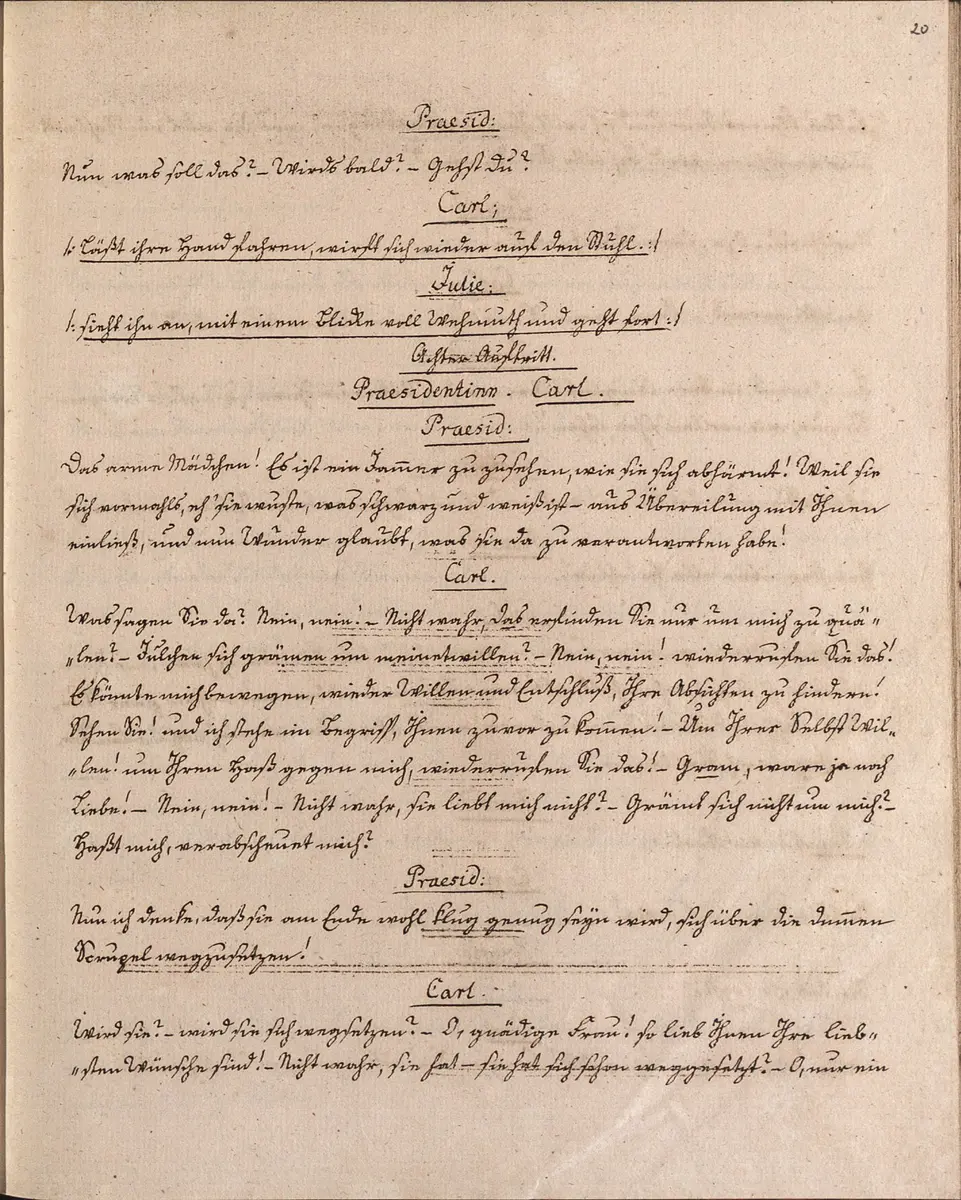 20
Praesid:
Nun was soll das? – Wirds bald? – Gehst du?
Carl;
/: Läßt ihre Hand fahren, wirft sich wieder auf den Stuhl. :/
Julie:
/: sieht ihn an, mit einem Blicke voll Wehmuth und geht fort :/
Achter Auftritt.
Praesidentinn. Carl.
Praesid:
Das arme Mädchen! Es ist ein Jammer zu zusehen, wie sie sich abhärmt! Weil sie
sich vormahls, eh' sie wuste, was schwarz und weiß ist – aus Übereilung mit Ihnen
einließ, und nun Wunder glaubt, was sie da zu verantworten habe!
Carl.
Was sagen Sie da? Nein, nein! – Nicht wahr, das erfinden Sie nur um mich zu quä=
=len? – Julchen sich grämen um meinetwillen? – Nein, nein! wiederrufen Sie das!
Es könnte mich bewegen, wieder Willen und Entschluß, Ihre Absichten zu hindern!
Sehen Sie! und ich stehe im Begriff, Ihnen zuvor zu kommen! – Um Ihrer Selbst Wil=
=len! um Ihren Haß gegen mich, wiederrufen Sie das! – Gram, ware ja noch
Liebe! – Nein, nein! – Nicht wahr, sie liebt mich nicht? – Grämt sich nicht um mich? –
Haßt mich, verabscheuet mich?
Praesid:
Nun ich denke, daß sie am Ende wohl klug genug seyn wird, sich über die dummen
Scrupel wegzusetzen!
Carl.
Wird sie? – wird sie sich wegsetzen? – O, gnädige Frau! so lieb Ihnen Ihre lieb=
=sten Wünsche sind! – Nicht wahr, sie hat – sie hat sich schon weggesetzt? – O, nur ein